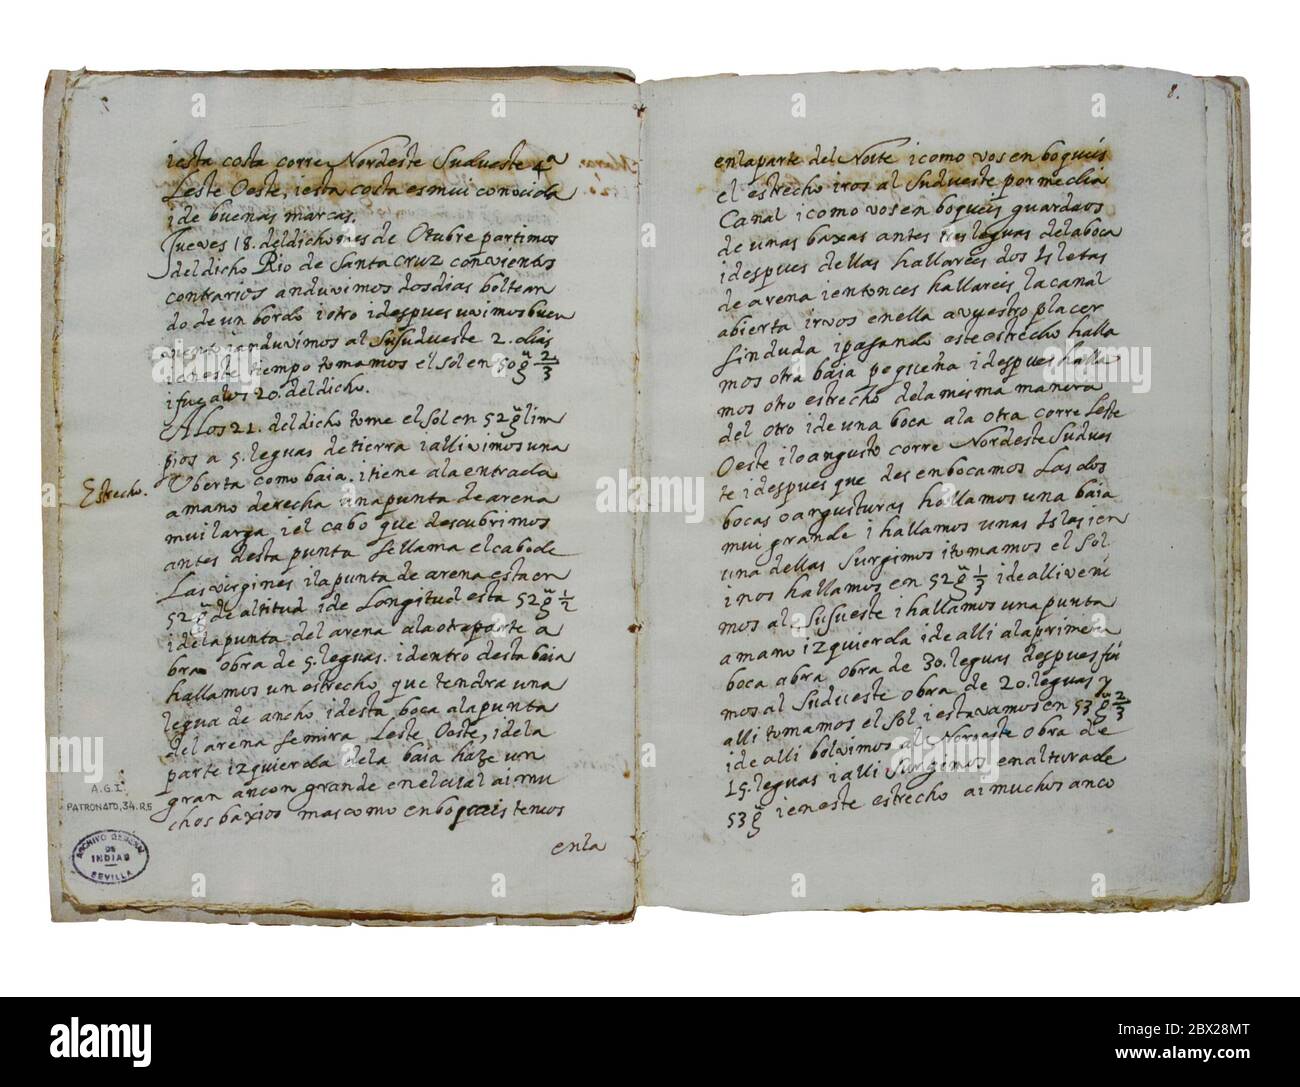 iesta costa corre Nordeste Sudueste 4ª
Leste Oeste, iesta costa es mui conocida
i de buenas marcas.
Jueves 18. del dicho mes de Otubre partimos
del dicho Rio de Santa Cruz con vientos
contrarios anduvimos dos dias boltean
do de un bordo i otro i despues uvimos buen
viento i anduvimos al Susudueste 2. dias
i en este tiempo tomamos el Sol en 50 g 2/3
i fue a los 20. del dicho.
A los 21. del dicho tome el Sol en 52 g lim
pios a 5. leguas de tierra i alli vimos una
Uberta como baia. i tiene a la entrada
Estrecho.
a mano derecha una punta de arena
mui larga i el cabo que descubrimos
antes desta punta se llama el cabo de
Las virgines i la punta de arena esta en
52 g de altitud i de Longitud esta 52 g 1/2
i de la punta del arena a la otra parte a
bra obra de 5. leguas. i dentro desta baia
hallamos un estrecho que tendra una
legua de ancho i desta boca a la punta
del arena se mira Leste Oeste, i de la
parte izquierda de la baia haze un
gran ancon grande en el cual ai mu
chos baxios mas como enboqueis teneos
en la
A.G.I.
PATRONATO, 34. R.5
ARCHIVO GENERAL
DE
INDIAS
SEVILLA
8.
en la parte del Norte i como vos en boqueis
el estrecho iros al Sudueste por media
Canal i como vos en boqueis guardaos
de unas baxas antes tres leguas de la boca
i despues dellas hallareis dos Isletas
de arena i entonces hallareis la canal
abierta irvos en ella a vuestro placer
sin duda i pasando este estrecho halla
mos otra baia pequeña i despues halla
mos otro estrecho de la misma manera
del otro i de una boca a la otra corre Leste
Oeste i lo angosto corre Nordeste Sudues
te i despues que desenbocamos Las dos
bocas o angusturas hallamos una baia
mui grande i hallamos unas Islas i en
una dellas Surgimos i tomamos el Sol
i nos hallamos en 52 g 1/3 i de alli veni
mos al Susueste i hallamos una punta
a mano izquierda i de alli a la primera
boca abra obra de 30. leguas despues fui
mos al Sudueste obra de 20. leguas y
alli tomamos el Sol i estavamos en 53 g 2/3
i de alli bolvimos al Noroeste obra de
15. leguas i alli Surgimos en altura de
53 g i en este estrecho ai muchos anco
alamy
Image ID: 2BX28MT
www.alamy.com